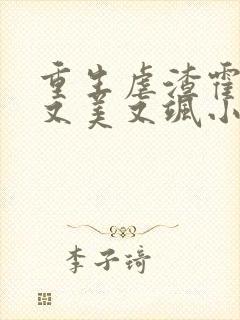 重生虐渣霍
又美又飒小
李子琦